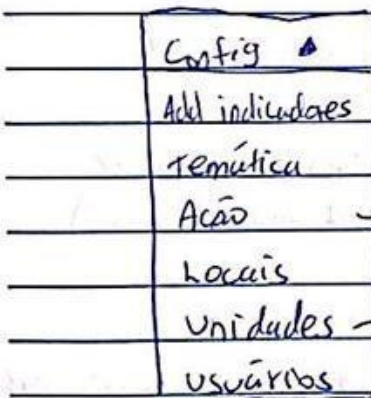 Config
Add indicadores
Temática
Ação
Locais
Unidades
usuários